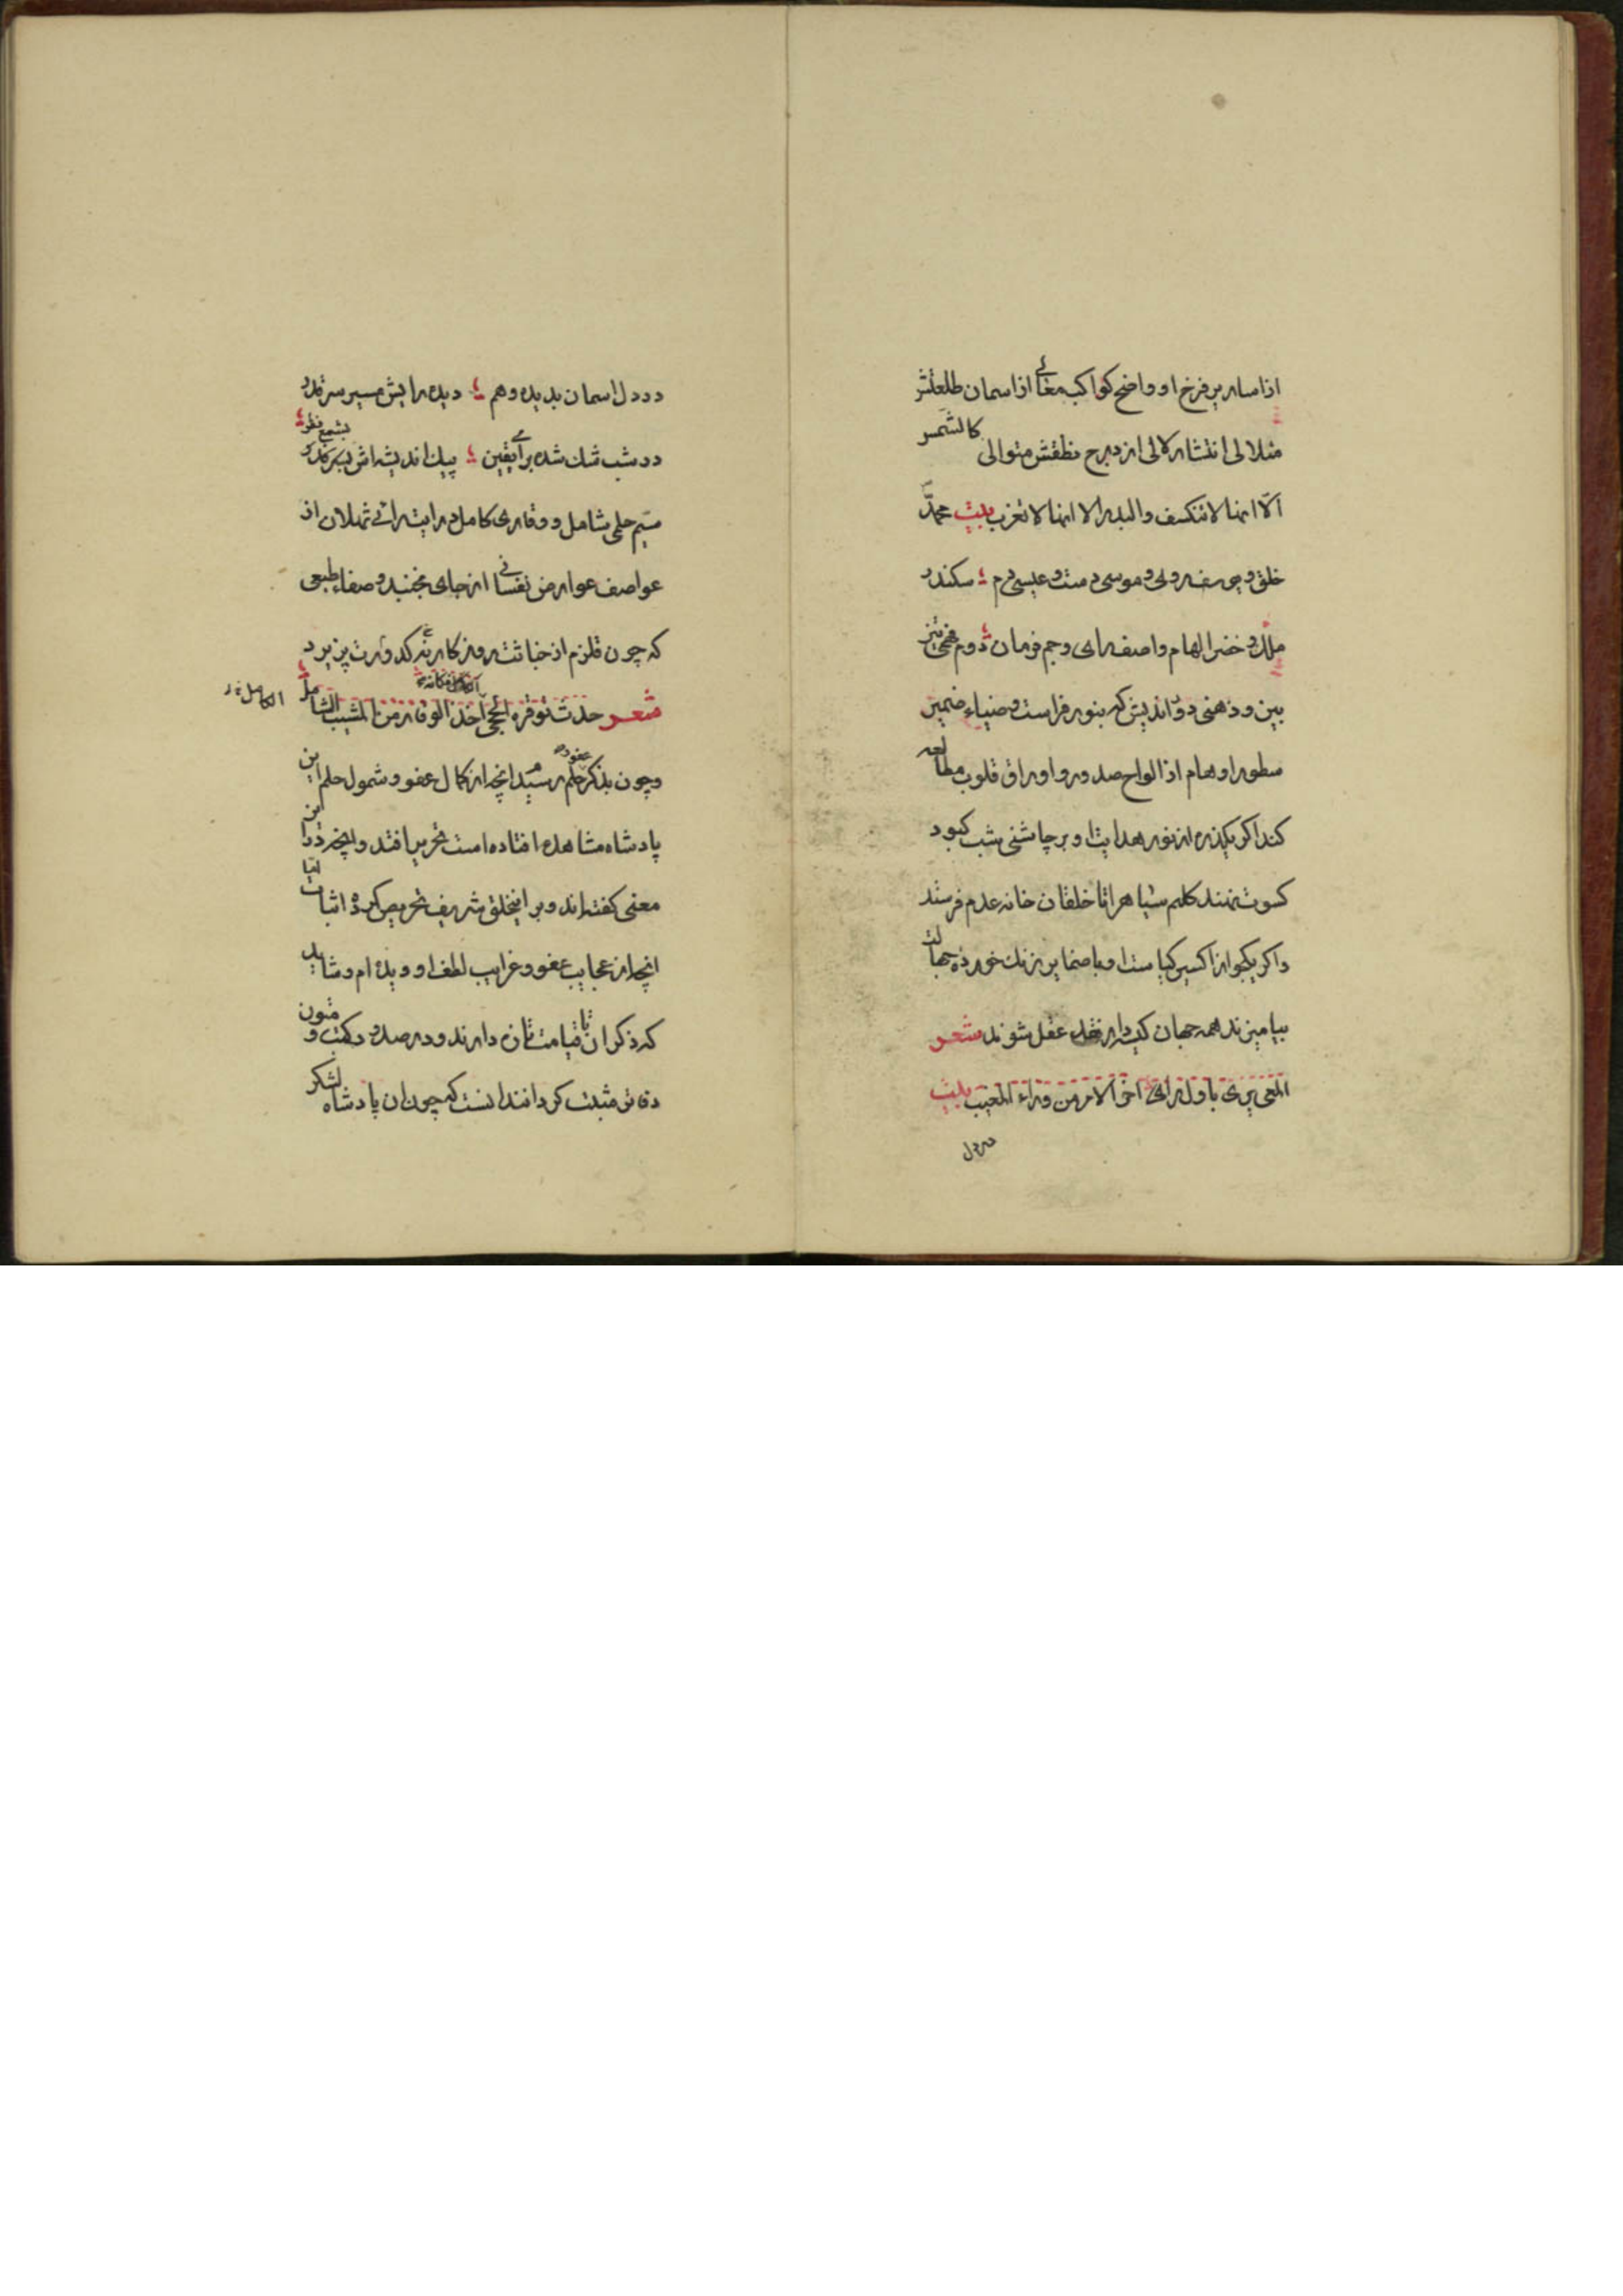 از اساریر فرخ او واضح کواکب معالی از آسمان طلعتش
متلالی انتشار لآلی از درج نطقش متوالی کالشمس
الا انها لا تنکسف والبدر الا انها لا تغرب بیت محمد
خلق و یوسف روی و موسی دست و عیسی دم سکندر
ملک و خضر الهام و آصف رای و جم فرمان
بین و ذهنی دوراندیش که بنور فراست و ضیاء ضمیر
سطور اوهام از الواح صدور و اوراق قلوب مطالعه
کند اگر یکذره از نور هدایت او بر چاشنی شب کبود
کسوت نهند کلیم سیاه را تا خلقان خانه عدم فرستد
و اگر یکجو از اکسیر کیاست او با ضمایر زنک خورده جهالت
بیامیزند همه جهان عقل شوند شعر
المعی یری باول رای آخر الامر من وراء المغیب بیت
در دل
در دل اسمان بدیده وهم دیده رایش مسیر سر قدر
در شب شک شده برای یقین پیک اندیشه اش بشمع نظر
حلمی شامل و وقاری کامل از
عواصف عوارض نفسانی از جای نجنبد و صفاء طبعی
که چون قلزم از خباثت روزکار کدورت نپزیرد
شعر حدث توقره الحجی اخذ الوقار من المشیب الشامل
الکامل
و چون بذکر حلم رسید انچه از کمال عفو و شمول حلم این
پادشاه مشاهده افتاده است تحریر افتد و انچه در این
معنی کفته اند و بر این خلق شریف تحریص کرده اثبات
انچه از عجایب عفو و غرایب لطف او دیده ام و شاید
که ذکر ان تا قیامت تازه دارند و در صدور کتب و متون
دفاتر مثبت کردانند انست که چون ان پادشاه لشکر